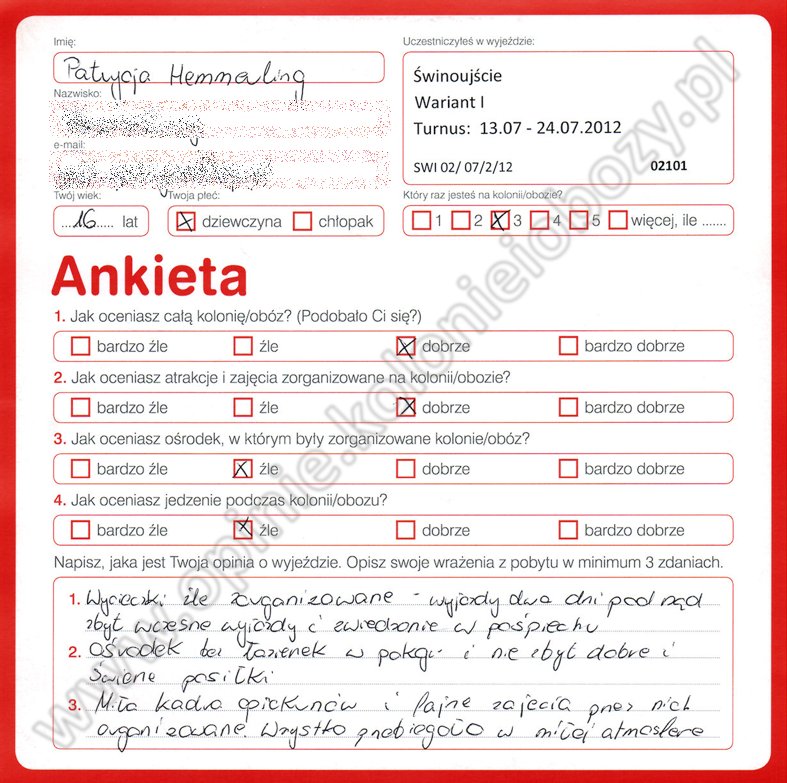 Imię:
Uczestniczyłeś w wyjeździe:
Patrycja Hemmerling
Nazwisko:
Świnoujście
Wariant I
Turnus: 13.07 - 24.07.2012
e-mail:
SWI 02/ 07/2/12 02101
Twój wiek:
Twoja płeć:
Który raz jesteś na kolonii/obozie?
....16..... lat
dziewczyna chłopak
1 2 3 4 5 więcej, ile .......
Ankieta
1. Jak oceniasz całą kolonię/obóz? (Podobało Ci się?)
bardzo źle źle dobrze bardzo dobrze
2. Jak oceniasz atrakcje i zajęcia zorganizowane na kolonii/obozie?
bardzo źle źle dobrze bardzo dobrze
3. Jak oceniasz ośrodek, w którym były zorganizowane kolonie/obóz?
bardzo źle źle dobrze bardzo dobrze
4. Jak oceniasz jedzenie podczas kolonii/obozu?
bardzo źle źle dobrze bardzo dobrze
Napisz, jaka jest Twoja opinia o wyjeździe. Opisz swoje wrażenia z pobytu w minimum 3 zdaniach.
1. Wycieczki źle zorganizowane - wyjazdy dwa dni pod rząd
zbyt wczesne wyjazdy i zwiedzanie w pośpiechu
2. Ośrodek bez łazienek w pokoju i nie zbyt dobre i
świeże posiłki
3. Miła kadra opiekunów i fajne zajęcia przez nich
organizowane. Wszystko przebiegało w miłej atmosferze
www.opinie.kolonieiobozy.pl